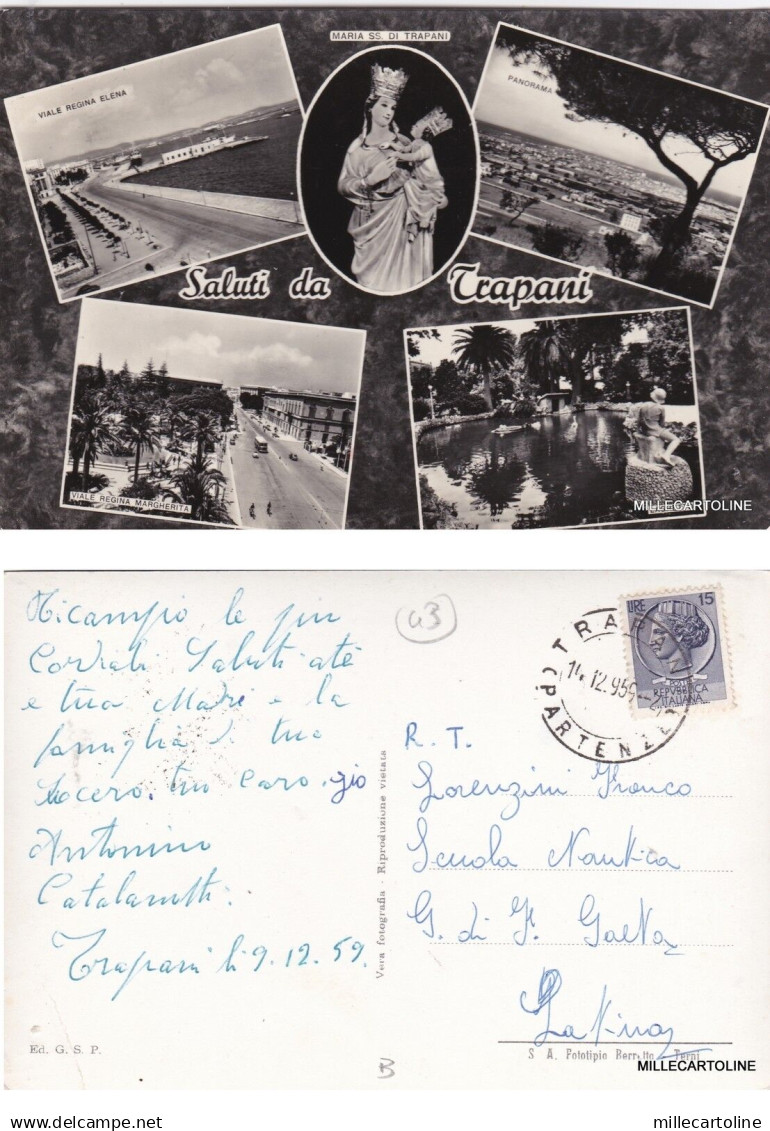 MARIA SS. DI TRAPANI
VIALE REGINA ELENA
PANORAMA
Saluti da Trapani
VIALE REGINA MARGHERITA
MILLECARTOLINE
Ricampio, le più
Cordiali Saluti a te
e tua Madre e la
famiglia di tuo
Socero. tuo Caro. zio
Antonino
Catalanotti.
Trapani li 9.12.59.
Ed. G. S. P.
Vera fotografia - Riproduzione vietata
43
TRAPANI
14.12.959
(PARTENZE)
LIRE 15
POSTE
REPVBBLICA
ITALIANA
R. T.
Lorenzini Franco
Scuola Nautica
G. di F. Gaeta
Latina
S. A. Fototipie Berretta - Terni
B
MILLECARTOLINE
delcampe.net
millecartoline